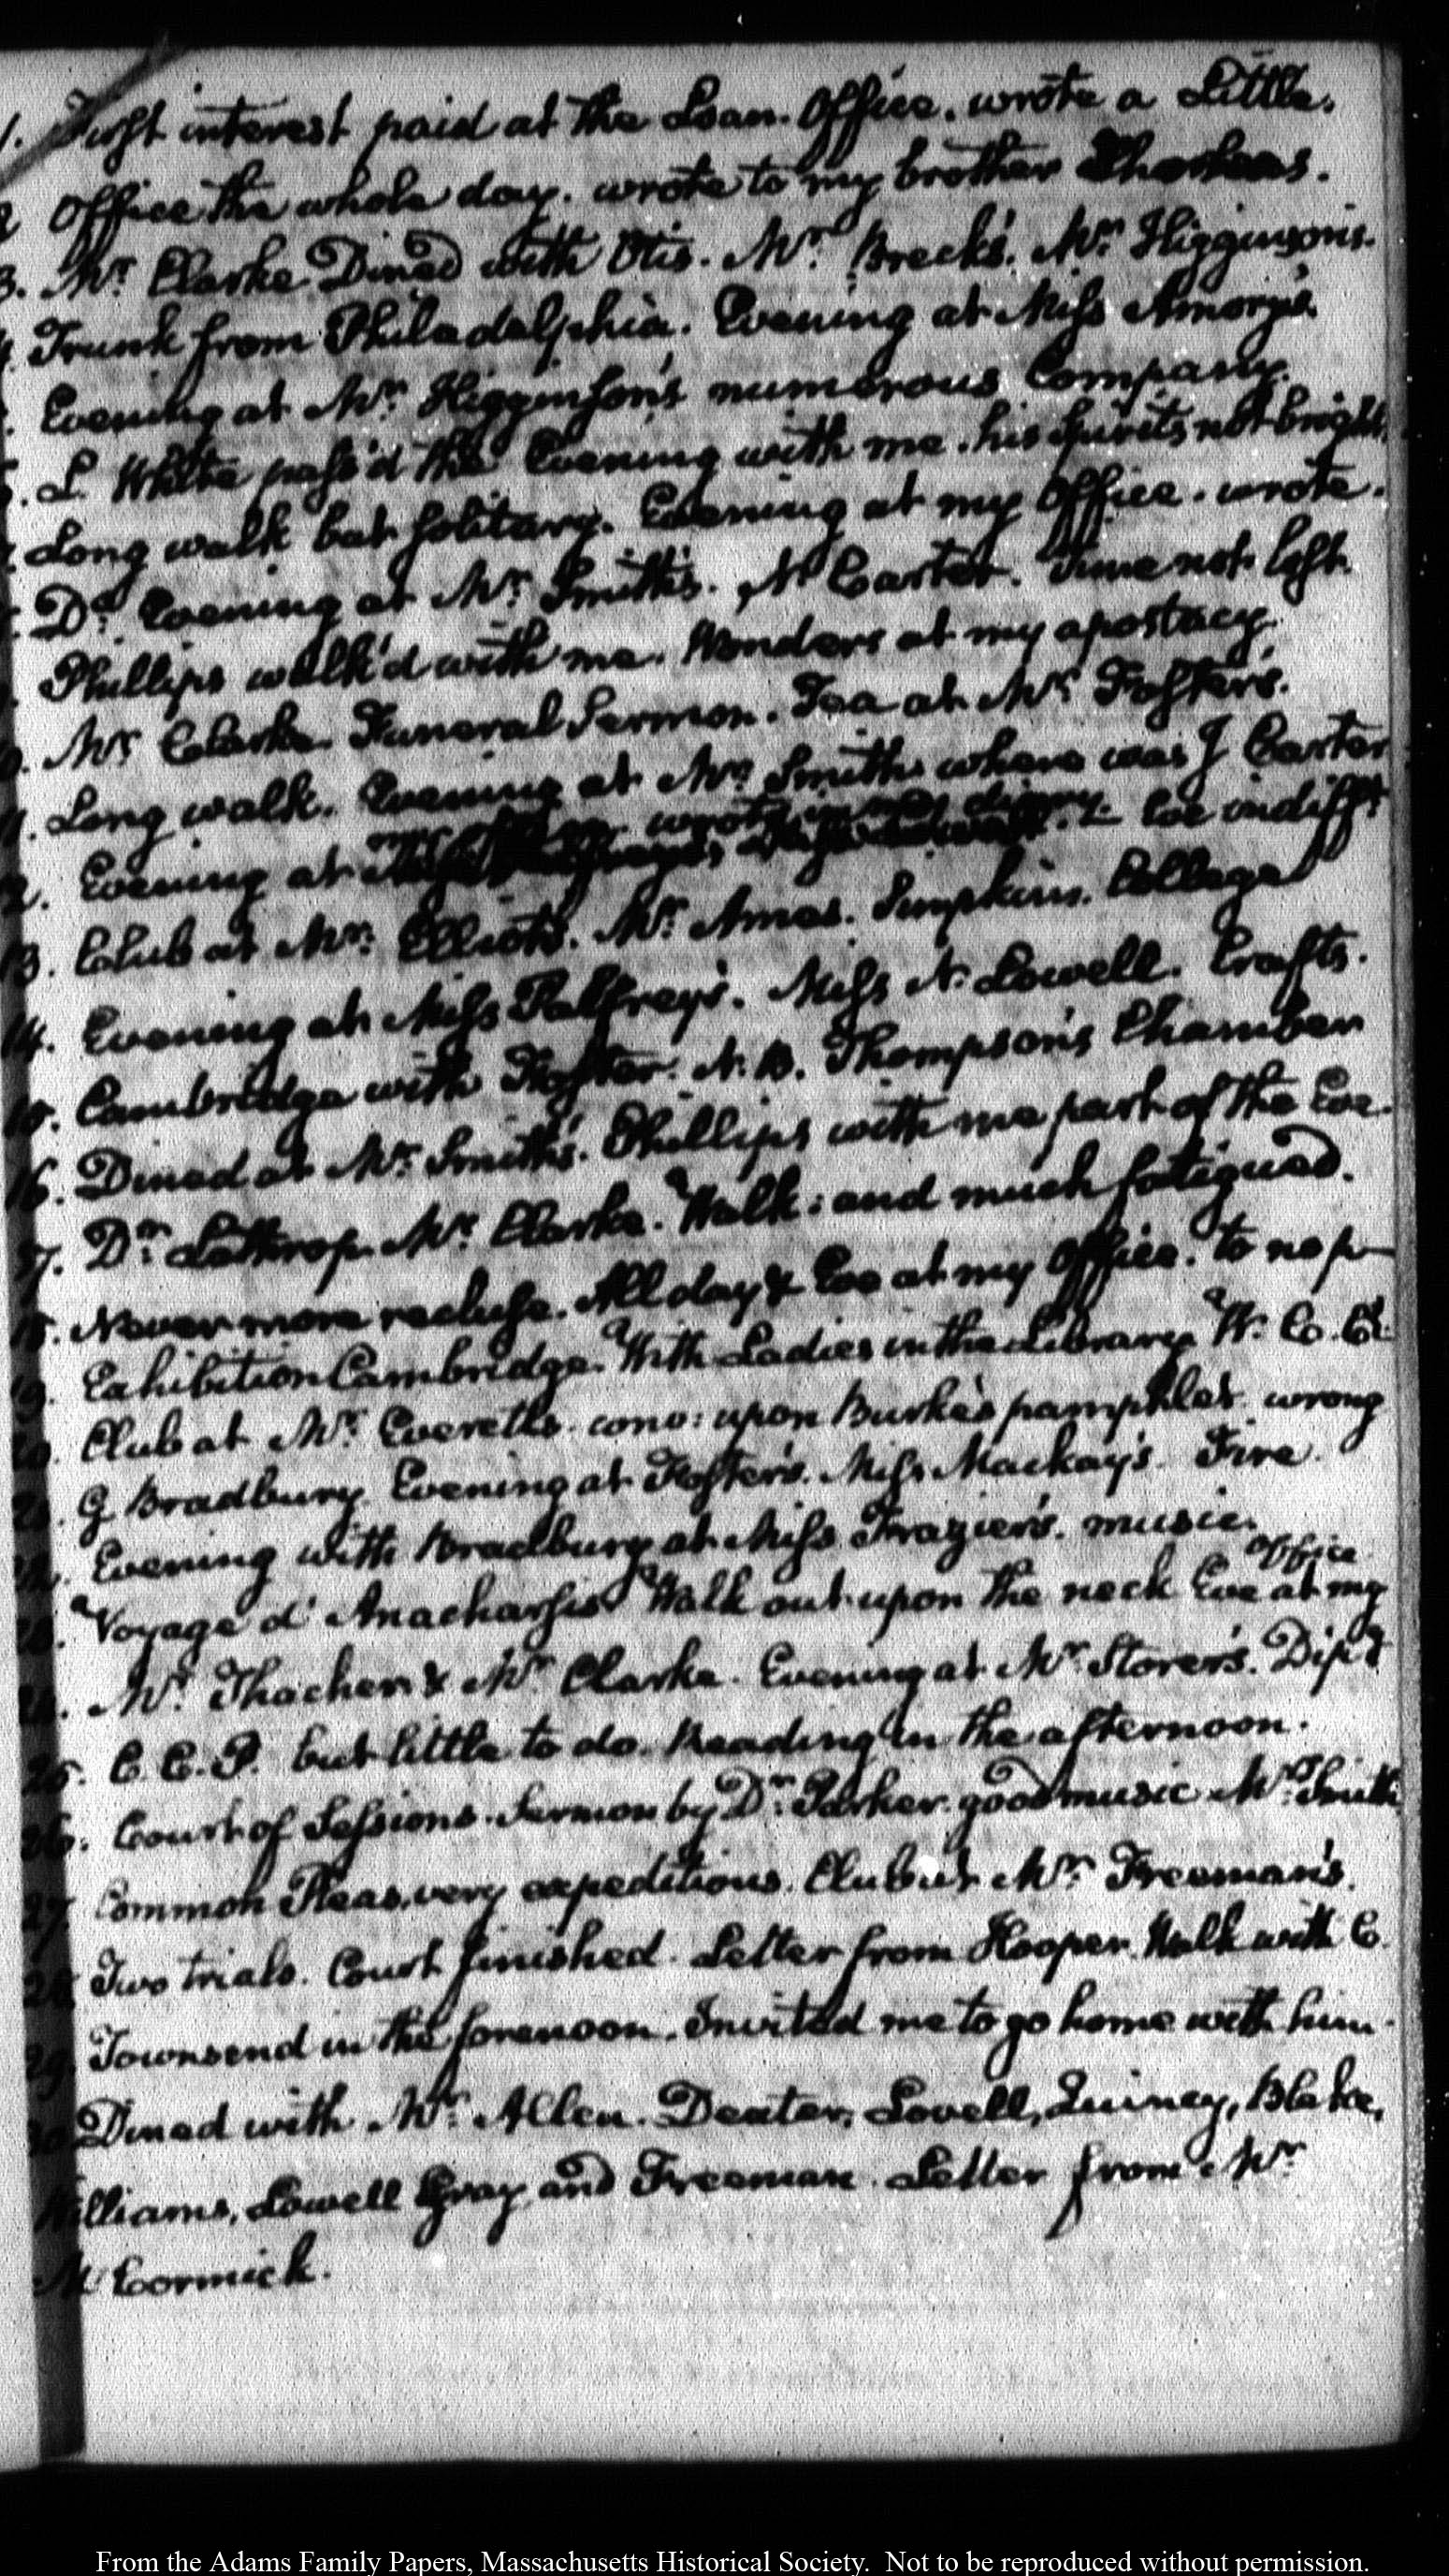 1. First interest paid at the Loan Office. wrote a Little.
2 Office the whole day. wrote to my brother
3. Mr. Clarke Dined with Otis. Mr. Breck's. Mr. Higginson's.
4. Trunk from Philadelphia. Evening at Miss Amory's.
Evening at Mr. Higginson's numerous Company.
L. White pass'd the Evening with me. his spirits not bright.
Long walk but solitary. Evening at my Office. wrote.
Do. Evening at Mr. Smith's. N Carter. time not lost
Phillips walk'd with me. Wonders at my apostacy.
Mr Clarke. Funeral Sermon. Tea at Mr. Foster's.
Long walk. Evening at Mr. Smith's where was J Carter
my office. wrote in my diary.
2. Evening at Eve indifft
13. Club at Mr. Elliot's. Mr. Ames. Simpkins. College
14. Evening at Miss Palfrey's. Miss N. Lowell. Crafts.
15. Cambridge with Foster. N. B. Thompson's Chamber
16. Dined at Mr. Smith's. Phillips with me part of the Eve.
17. Dr. Lathrop. Mr. Clarke. Walk: and much fatigued.
18. Never more recluse. All day & Eve at my Office. to no p—
19. Exhibition Cambridge. With Ladies in the Library. W. Co. Cd.
20. Club at Mr. Everett's. conv: upon Burke's pamphlet. wrong
21. G Bradbury. Evening at Foster's. Miss Mackay's. Fire.
22. Evening with Bradbury at Miss Frazier's. music.
Office
Voyage d' Anacharsis Walk out upon the neck Eve at my
Mr. Thacher & Mr. Clarke. Evening at Mr. Storer's. Dispd
25. C. C. P. but little to do. Reading in the afternoon.
26. Court of Sessions. Sermon by Dr. Parker. good music Mr. Smith
27. Common Pleas. very expeditious. Club at Mr. Freeman's.
28. Two trials. Court finished. Letter from Hooper. Walk with C.
29. Townsend in the forenoon. Invited me to go home with him.
30 Dined with Mr. Allen. Dexter, Lovell, Quincy, Blake,
Williams, Lowell Gray and Freeman. Letter from Mr
McCormick.
From the Adams Family Papers, Massachusetts Historical Society. Not to be reproduced without permission.